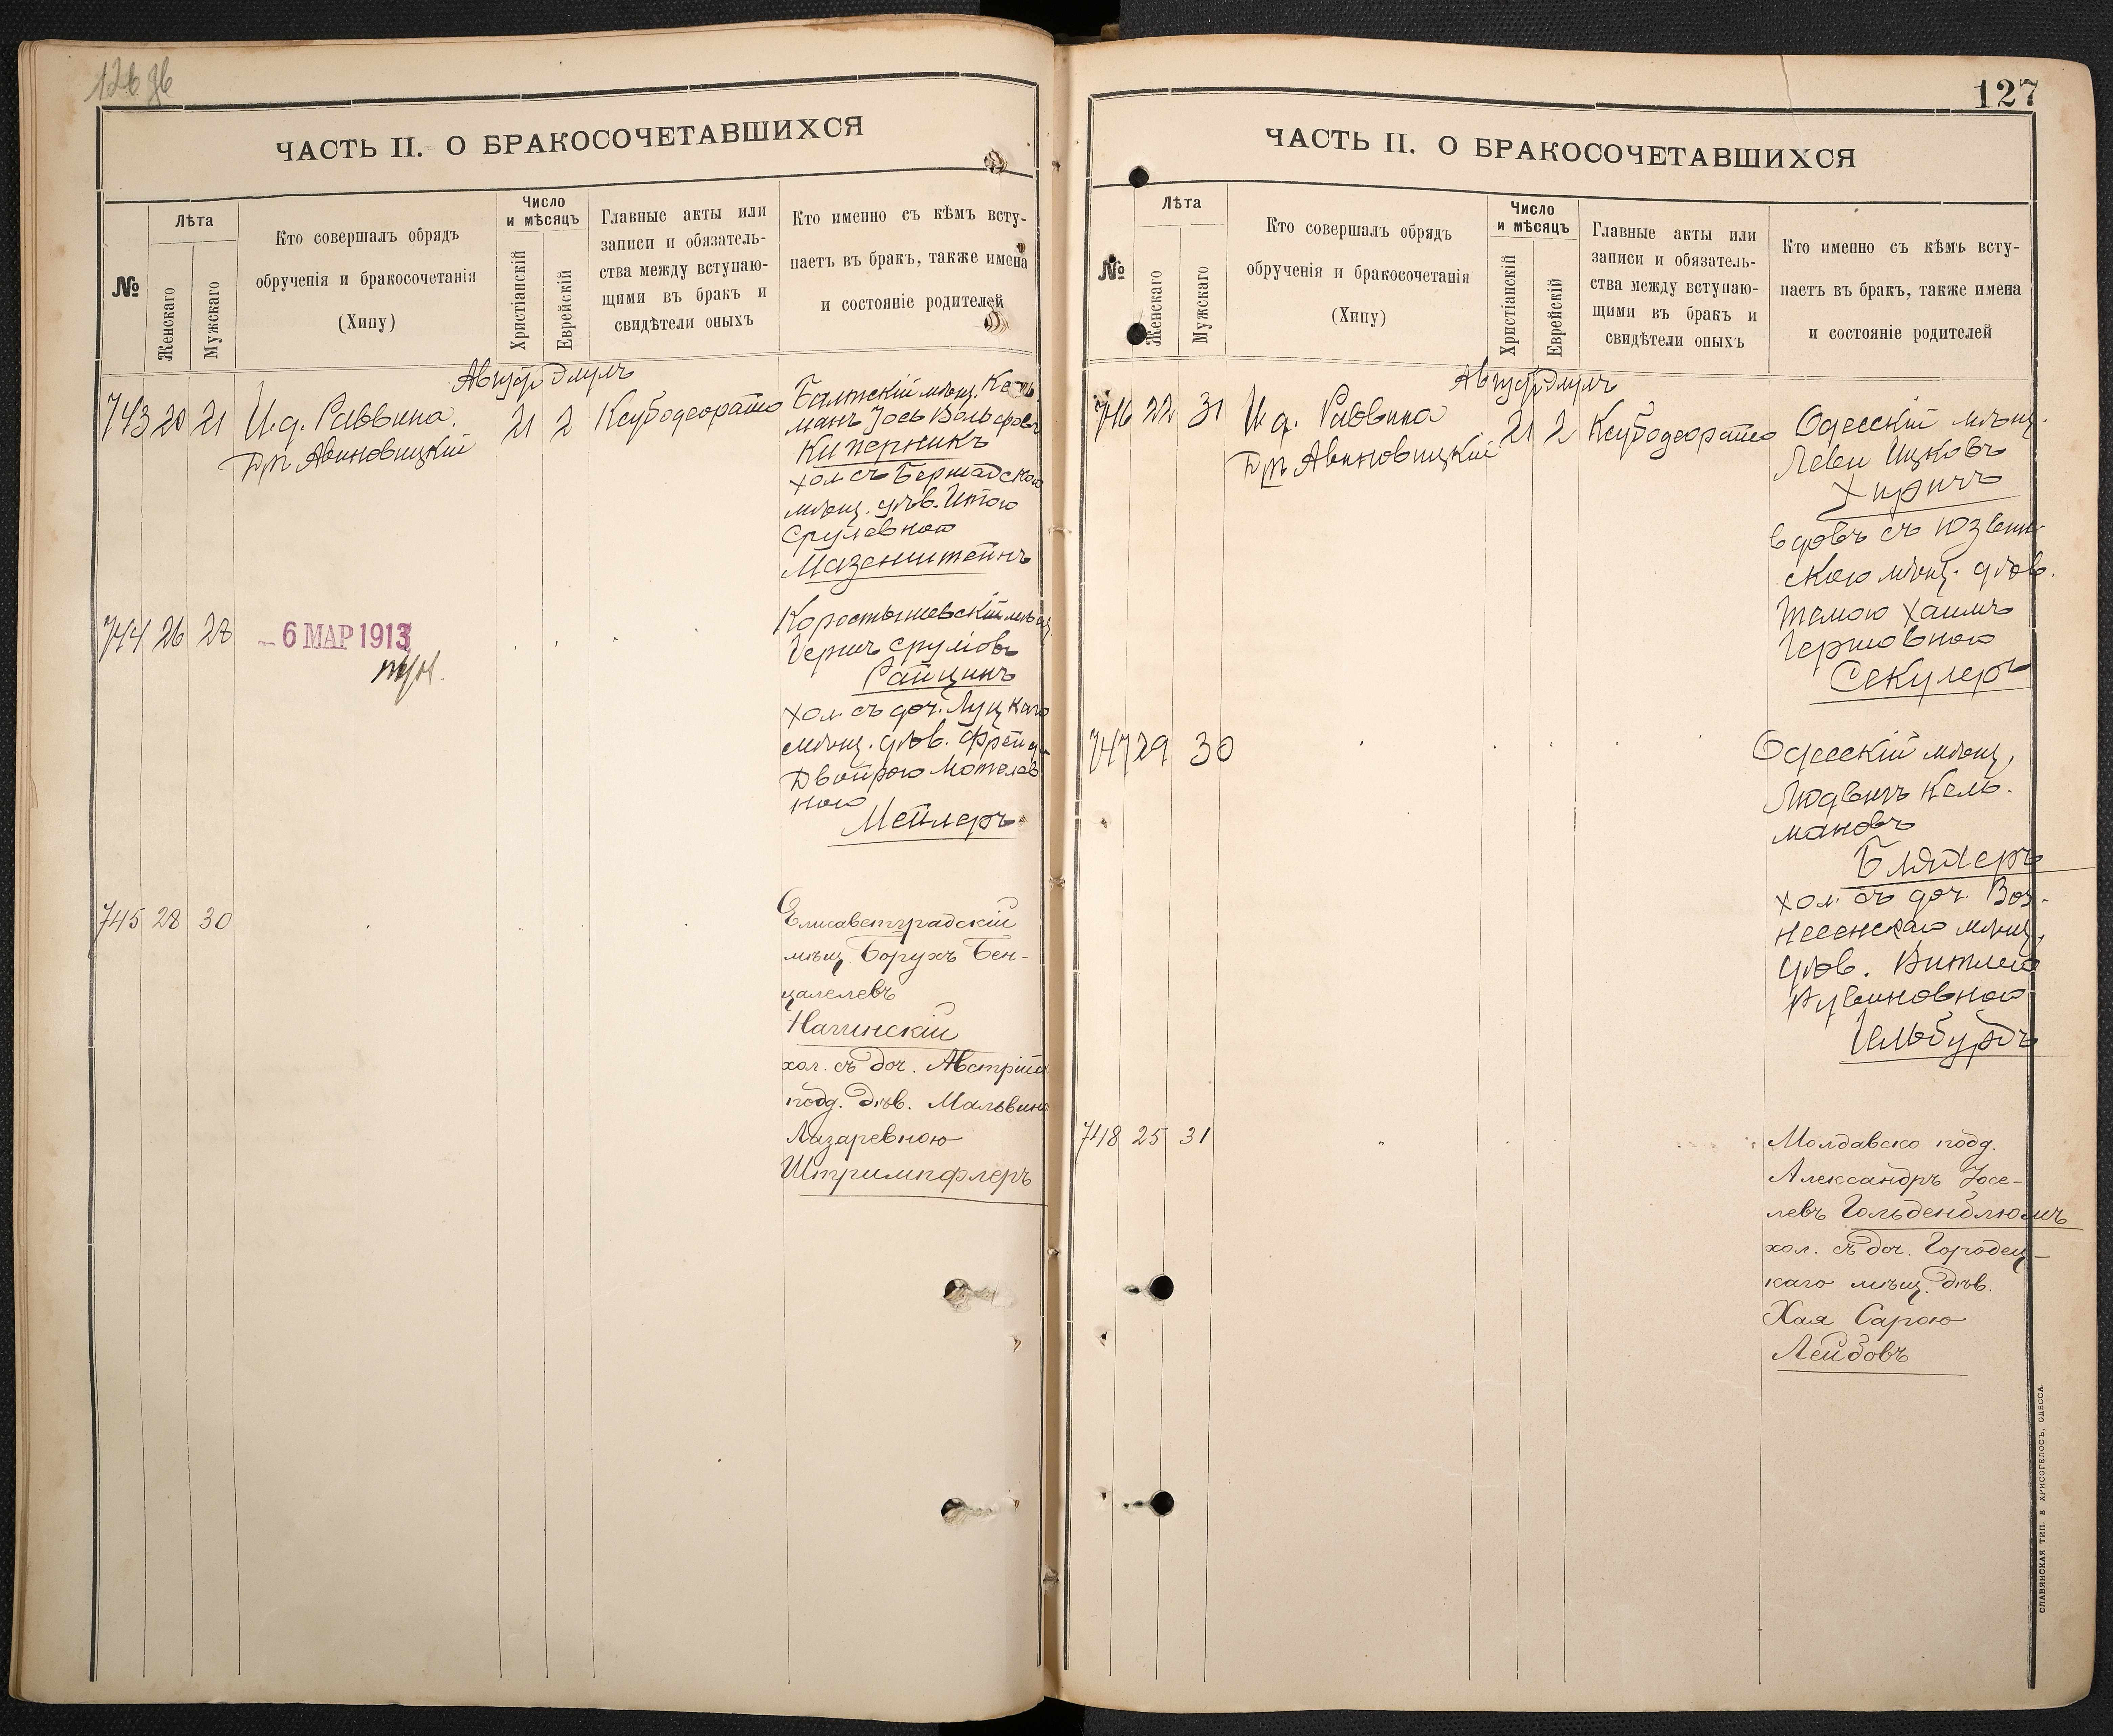 ЧАСТЬ II. О БРАКОСОЧЕТАВШИХСЯ
№
Лѣта
Женскаго
Мужскаго
Кто совершалъ обрядъ
обрученія и бракосочетанія
(Хипу)
Число
и мѣсяцъ
Христіанскій
Еврейскій
Главные акты или
записи и обязатель-
ства между вступаю-
щими въ бракъ и
свидѣтели оныхъ
Кто именно съ кѣмъ всту-
паетъ въ бракъ, также имена
и состояніе родителей
743 20 21
И. д. Раввина
Др Авиновицкій
21 2
Балтскій мѣщ.
манъ Іось Вольфовъ
Киперникъ
хол съ Бершадскою
мѣщ. дѣв. Итою
Срулевною
Мазенштейнъ
744 26 28
- 6 МАР 1913
Коростышевскій мѣщ.
Гершъ Сруліовъ
Райцинъ
хол. съ доч. Луцкаго
мѣщ. дѣв.
Двойрою Мотелев
ною
Мейлеръ
745 28 30
Елисаветградскій
мѣщ. Борухъ Бен-
цалелевъ
Нагинскій
хол. съ доч. Австрійск
подд. дѣв. Мальвин
Лазаревною
Штримпфлеръ
127
ЧАСТЬ II. О БРАКОСОЧЕТАВШИХСЯ
№
Лѣта
Женскаго
Мужскаго
Кто совершалъ обрядъ
обрученія и бракосочетанія
(Хипу)
Число
и мѣсяцъ
Христіанскій
Еврейскій
Главные акты или
записи и обязатель-
ства между вступаю-
щими въ бракъ и
свидѣтели оныхъ
Кто именно съ кѣмъ всту-
паетъ въ бракъ, также имена
и состояніе родителей
746 22 31
И. д. Раввина
Др Авиновицкій
21 2
Одесскій мѣщ.
Леви Ицковъ
вдовъ съ Юзвен-
скою мѣщ. дѣв.
Гершовною
Секулеръ
747 29 30
Одесскій мѣщ.
Людвигъ Кель-
мановъ
Бляхеръ
хол. съ доч. Воз-
несенскаго мѣщ.
дѣв.
Рувиновною
Гельбурдъ
748 25 31
Молдавско подд.
Александръ Іосе-
левъ Гольденблюмъ
хол. съ доч. Городец-
каго мѣщ. дѣв.
Хая Сарою
Лейбовъ
СЛАВЯНСКАЯ ТИП. Е ХРИСОГЕЛОСЪ, ОДЕССА.